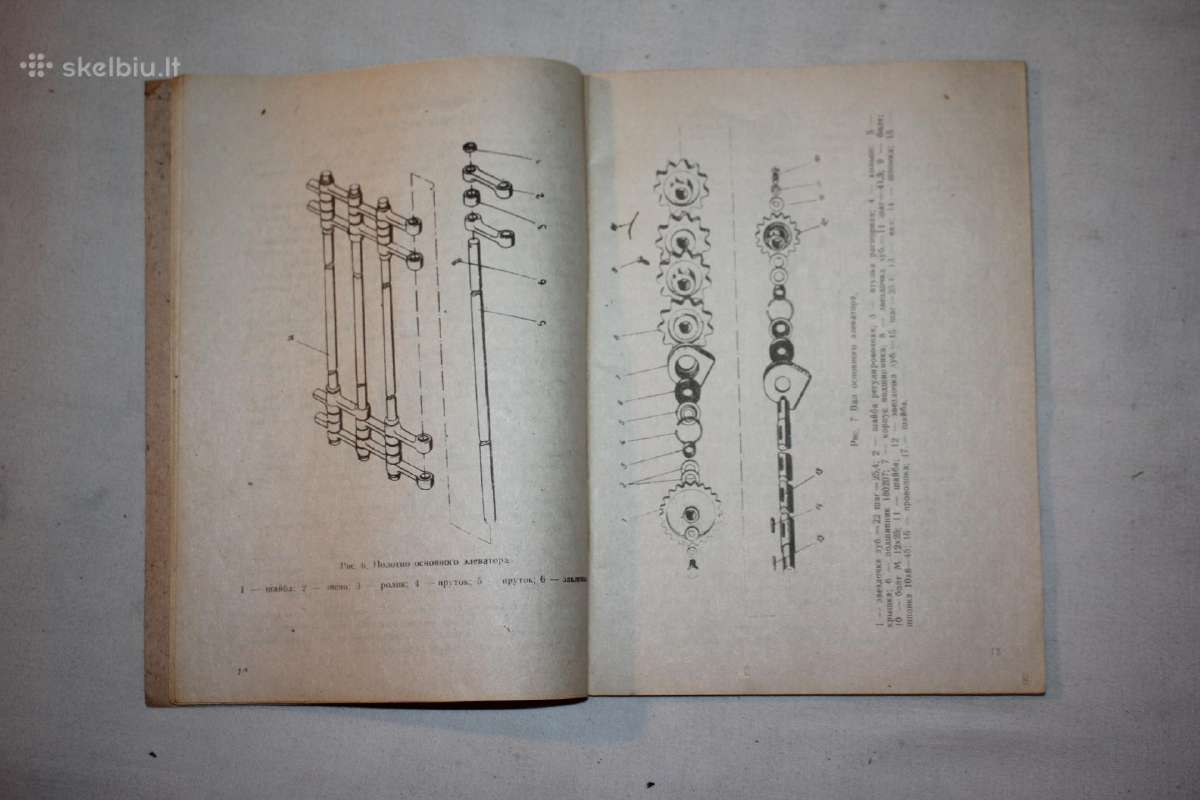 skelbiu.lt
Рис. 6. Полотно основного элеватора.
1 — шайба; 2 — звено; 3 — ролик; 4 — пруток; 5 — пруток; 6 —
Рис. 7 Вал основного элеватора.
1 — звездочка зуб.—22 шаг—25,4; 2 — шайба регулировочная; 3 — втулка распорная; 4 — кольцо; 5 —
крышка; 6 — подшипник 180207; 7 — корпус подшипника; 8 — звездочка зуб.—11 шаг—41,3; 9 — болт;
10 — болт М 12х25; 11 — шайба; 12 — звездочка зуб.—15 шаг—25,4; 13 — вал; 14 — шпонка; 15
шпонка 10х8—45; 16 — проволока; 17 — шайба.